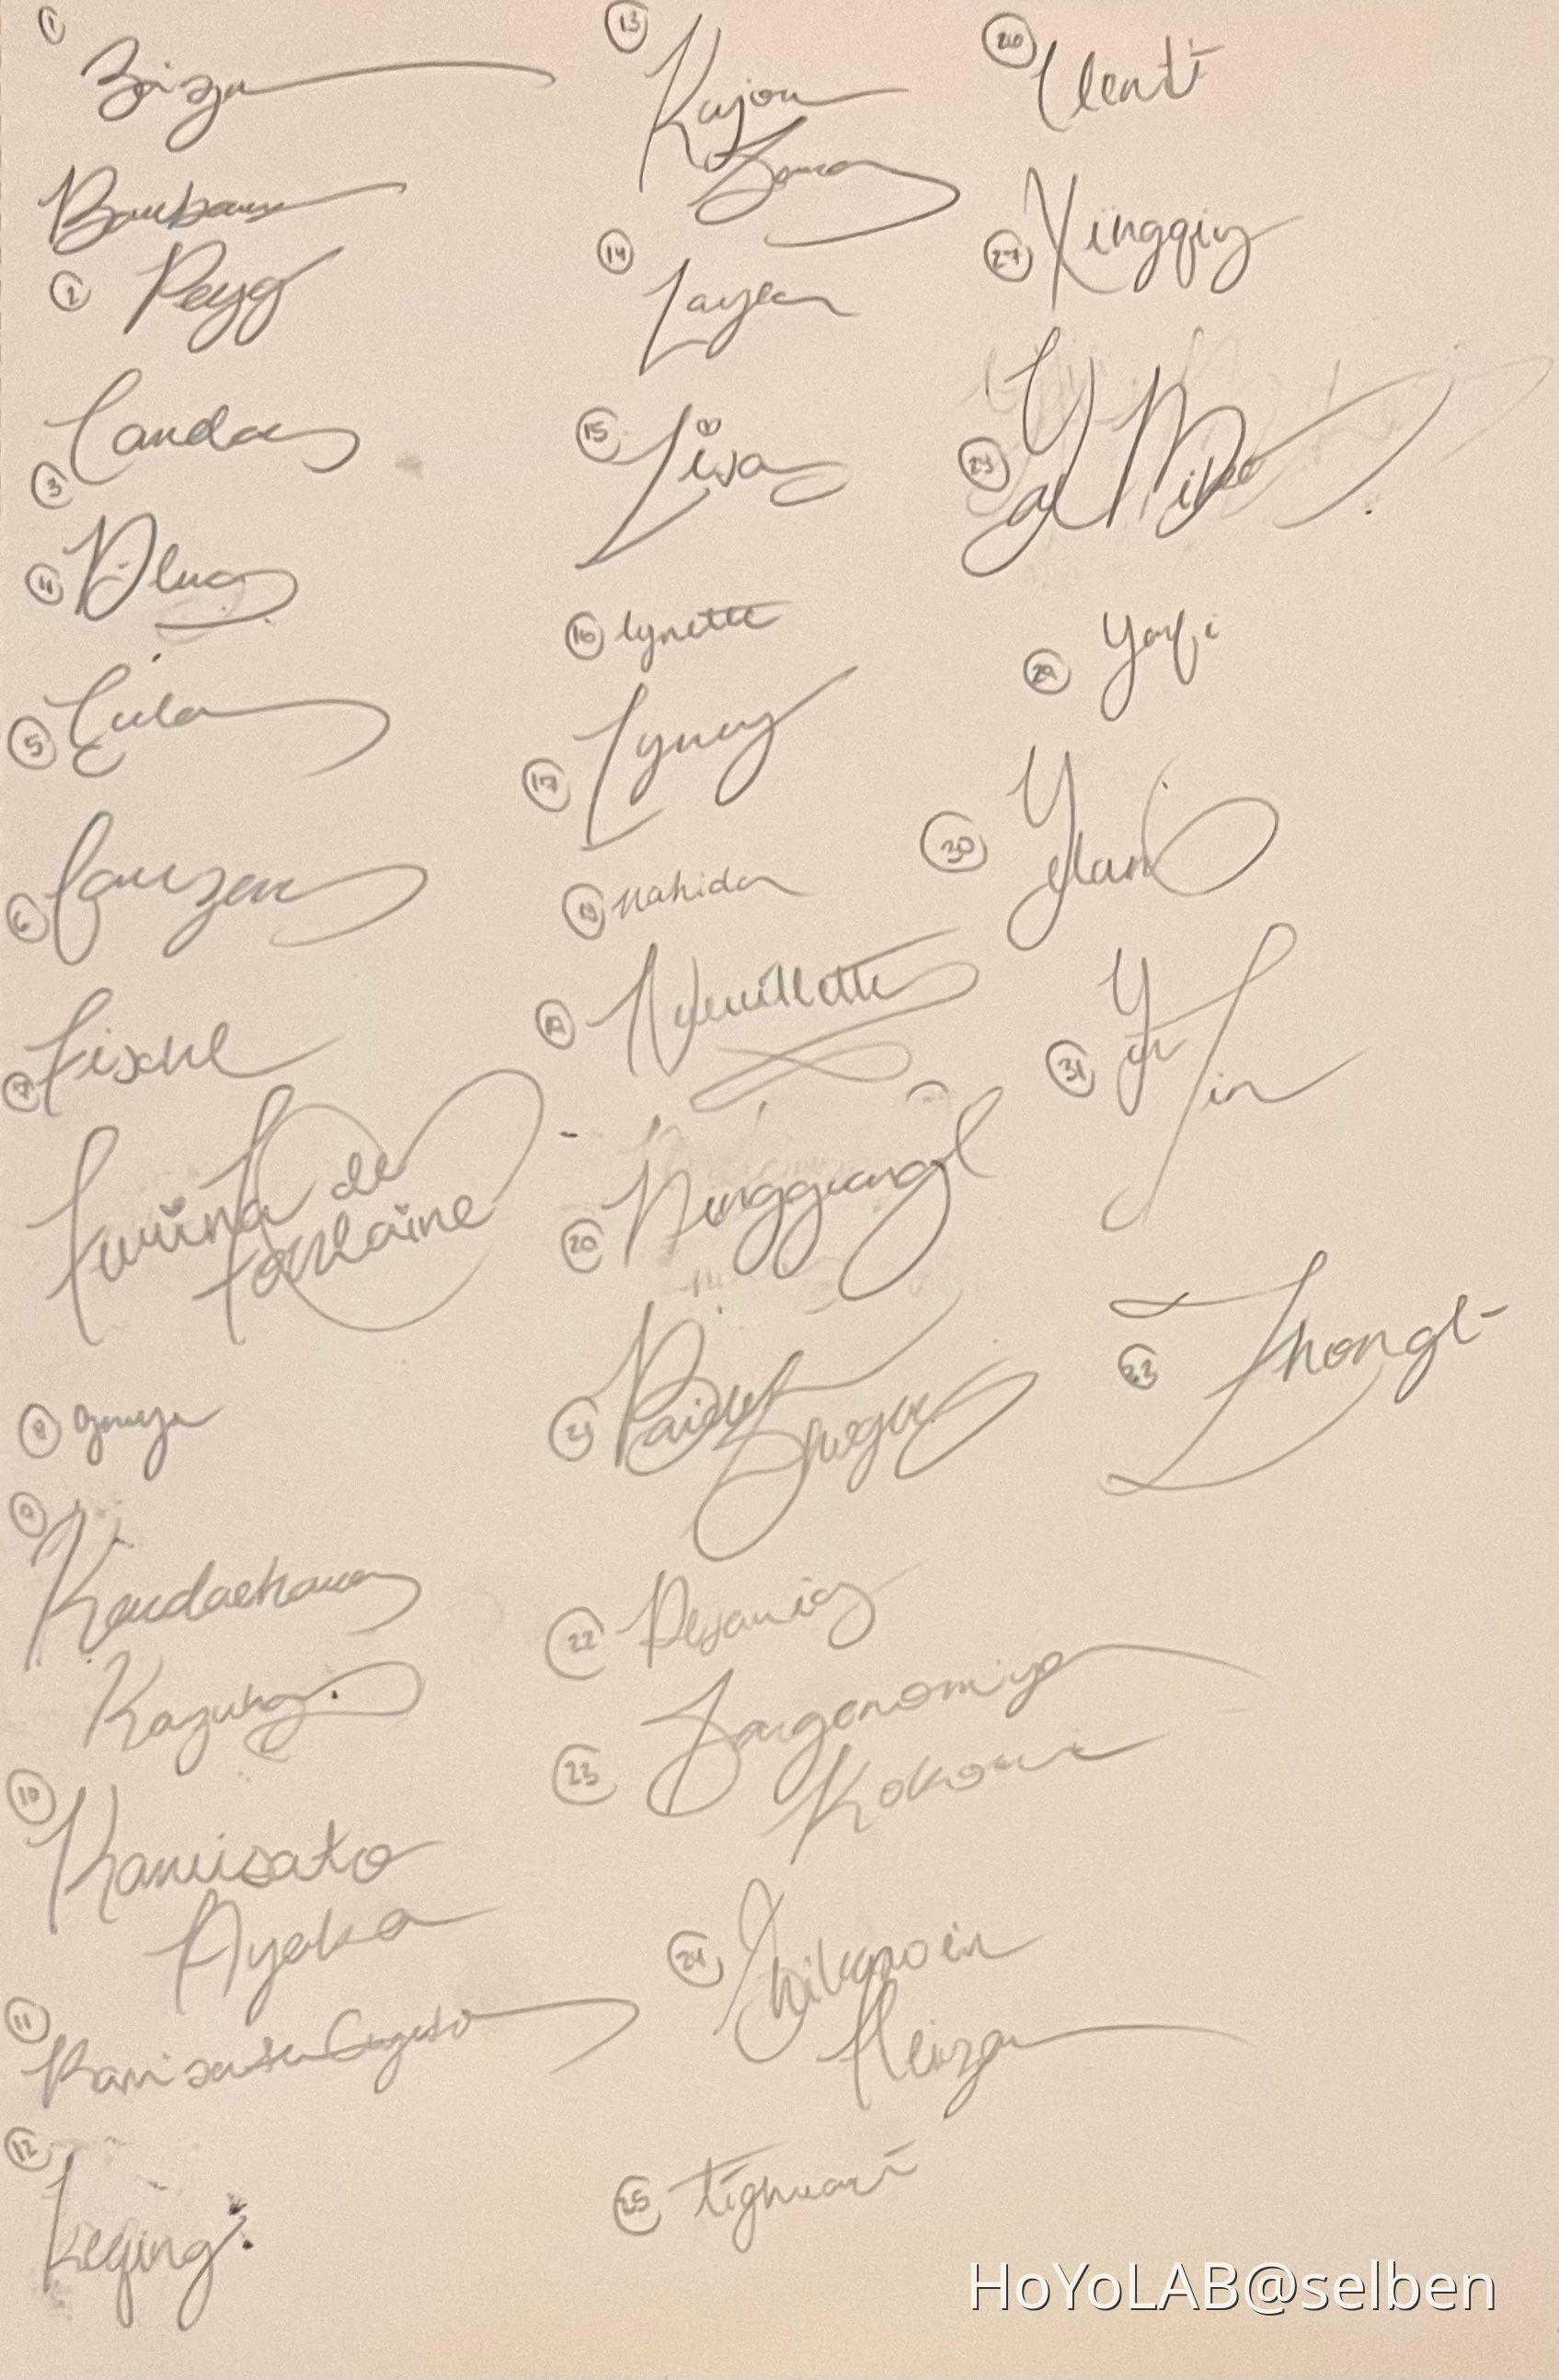 1
Baizhu
2
Candace
3
4
Diluc
5
Eula
6
Faruzan
7
Fischl
Furina de
Fontaine
8
Ganyu
9
Kaedehara
Kazuha
10
Kamisato
Ayaka
11
Kamisato Ayato
12
keqing
13
Kujou
Sara
14
Layla
15
Lisa
16
lynette
17
Lyney
18
nahida
19
Neuvillette
20
Ningguang
21
Raiden
Shogun
22
23
Sangonomiya
Kokomi
24
Shikanoin
Heizou
25
tighnari
26
Venti
27
Xingqiu
Yae Miko
29
Yaoyao
30
Yelan
31
Yun
Jin
32
Zhongli
HoYoLAB@selben